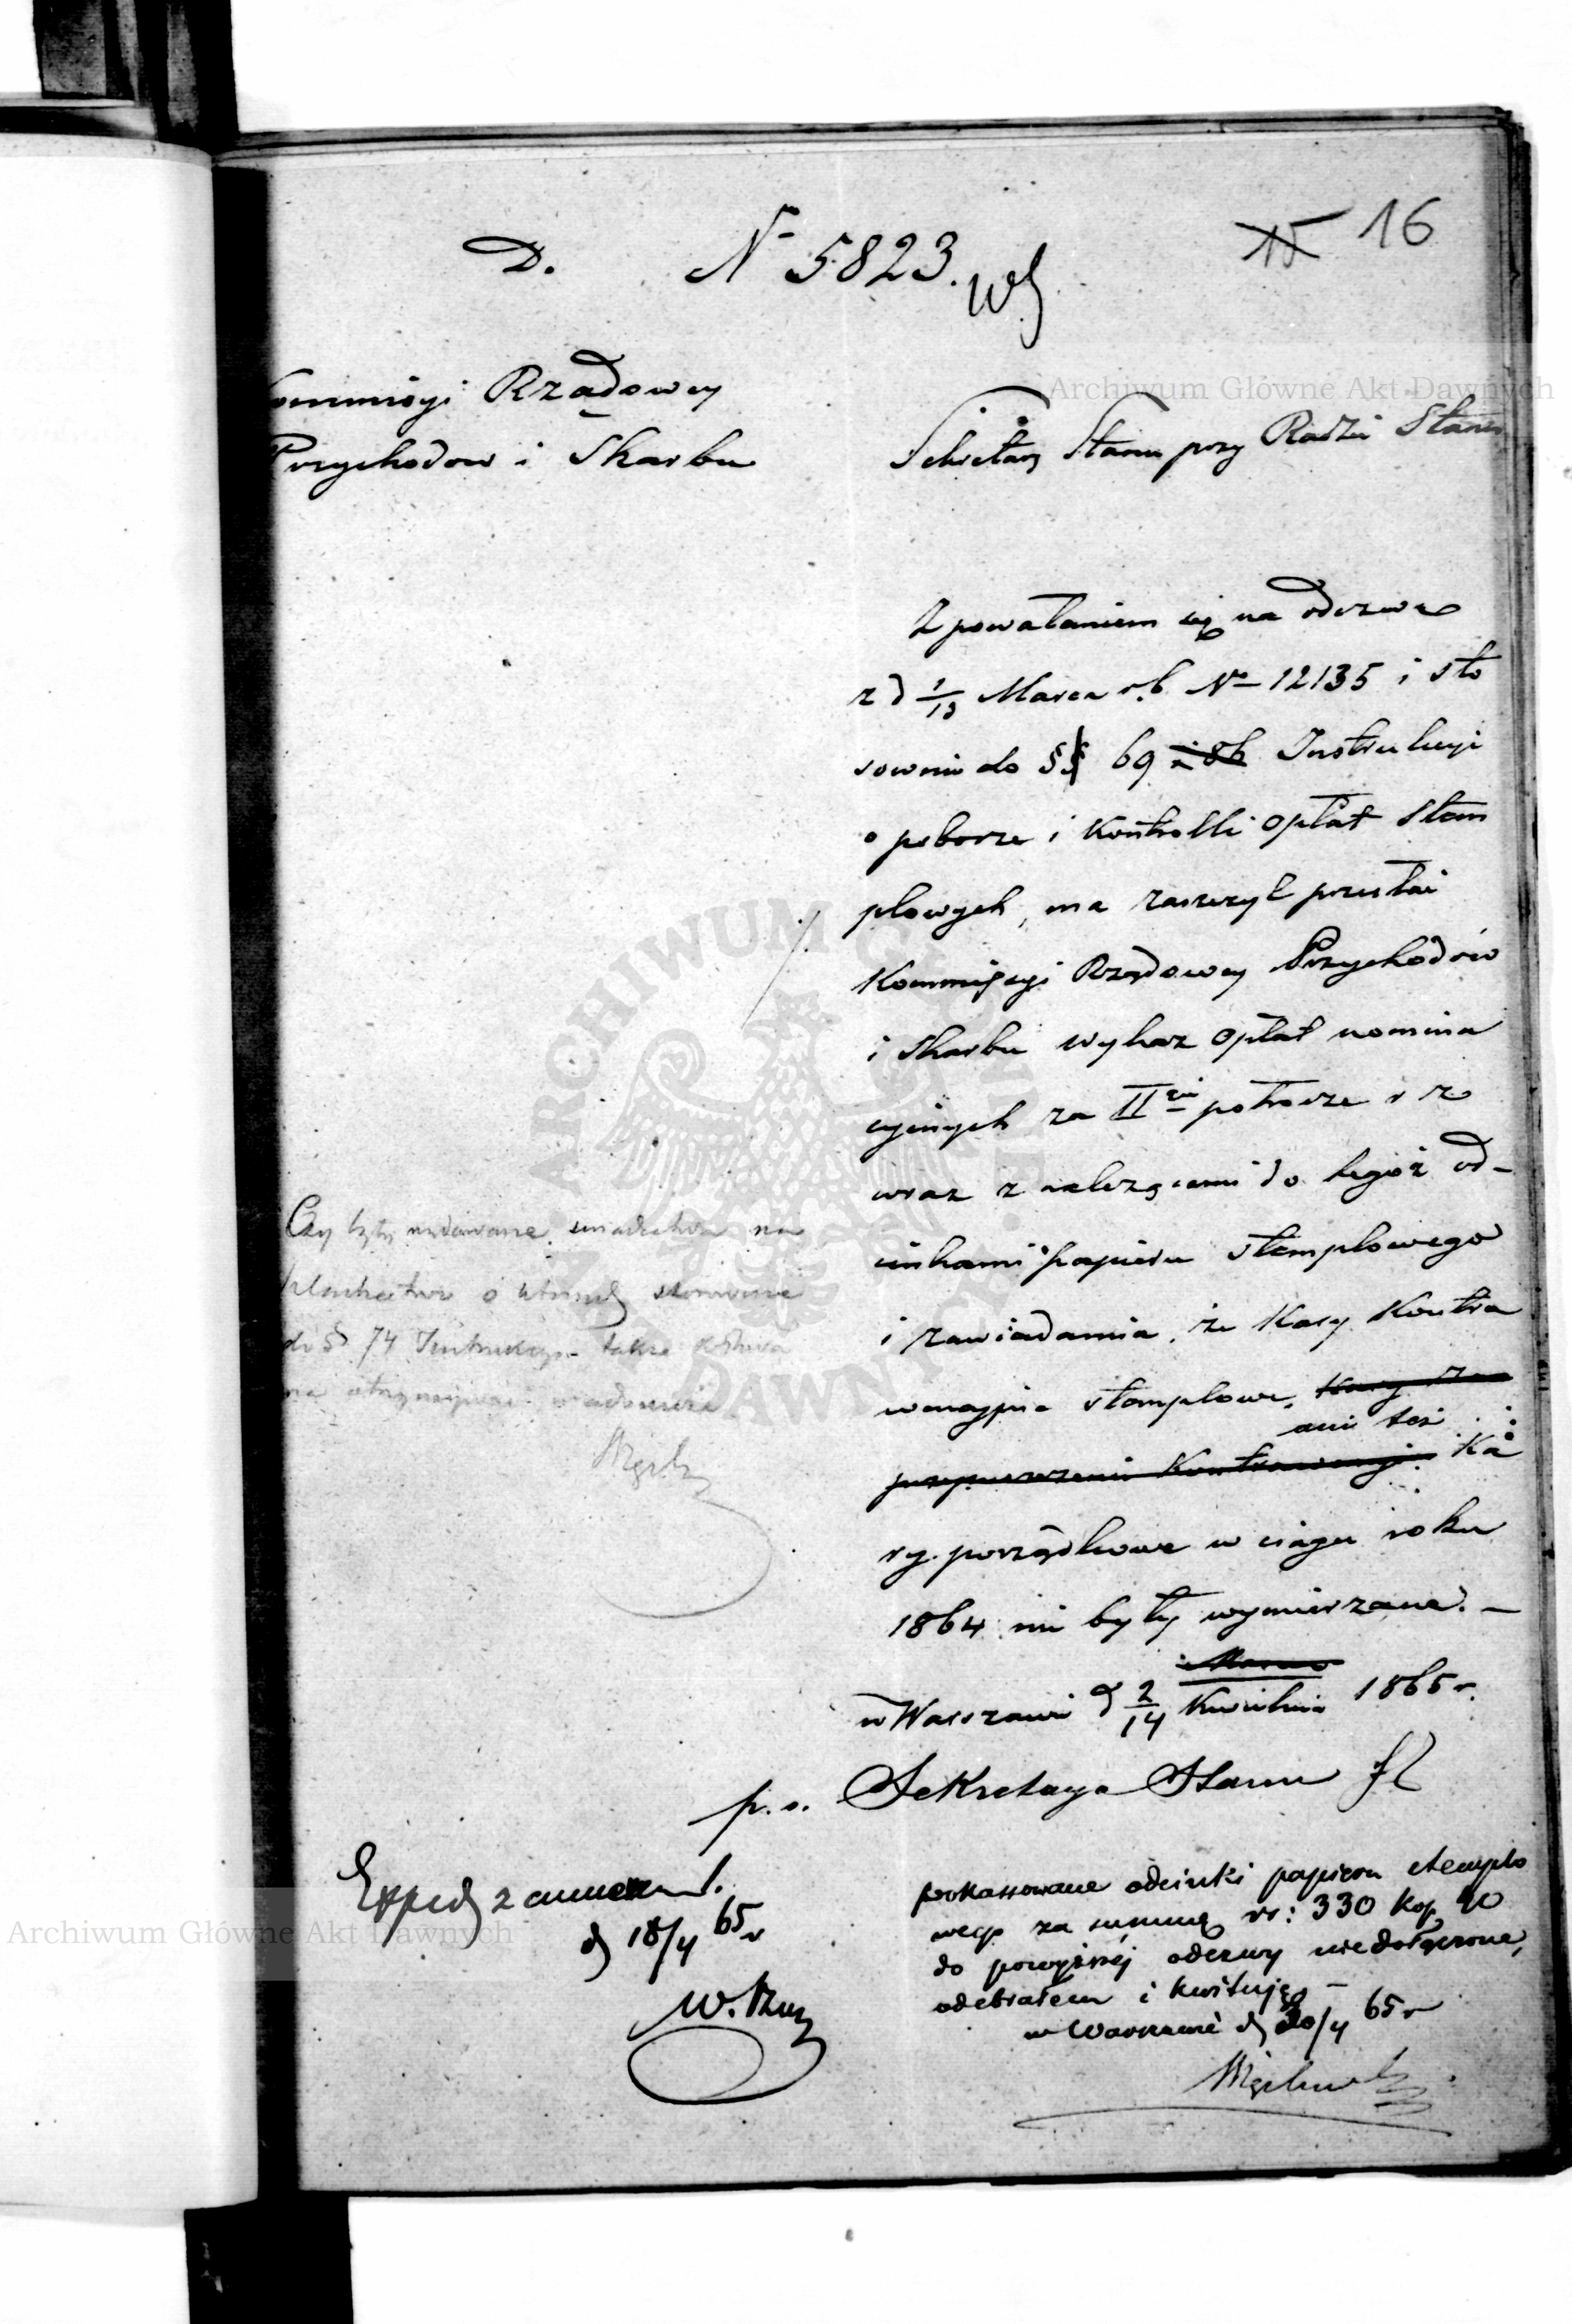 D. N° 5823.
15 16
Kommissyi Rządowey
Przychodow i Skarbu
Sekretarz Stanu przy Radzie Stanu
Z powołaniem się na odezwę
z d 1/13 Marca r.b. N° 12135 i sto
sownie do §§ 69 i 86 Instrukcyi
o poborze i Kontrolli opłat stem
plowych, ma zaszczyt przesłać
Kommissyi Rządowey Przychodów
i Skarbu wykaz opłat nomina
cyjnych za II gie półrocze r z
wraz z należącemi do tegoż od-
cinkami papieru stemplowego
i zawiadamia, że Kary Kontra
wencyjne stemplowe, Kary za
ani też
przepuszczenie Kontrawencyi Ka
ry porządkowe w ciągu roku
1864 nie były wymierzane. –
Marca
w Warszawie d 2/14 Kwietnia 1865 r.
p. o. Sekretarza Stanu
Czy były wydawane świadectwa na
szlachectwo o których stosownie
do § 74 Instrukcyi także
wiadomość
Exped z annex 1.
d 18/4 65 r
pokassowane odcinki papieru stemplo
wego za summę rs: 330 kop 90
do powyższéj odezwy niedołączone,
odebrałem i kwituję –
w Warszawie d 20/4 65 r
Archiwum Główne Akt Dawnych
Archiwum Główne Akt Dawnych
ARCHIWUM GŁÓWNE AKT DAWNYCH